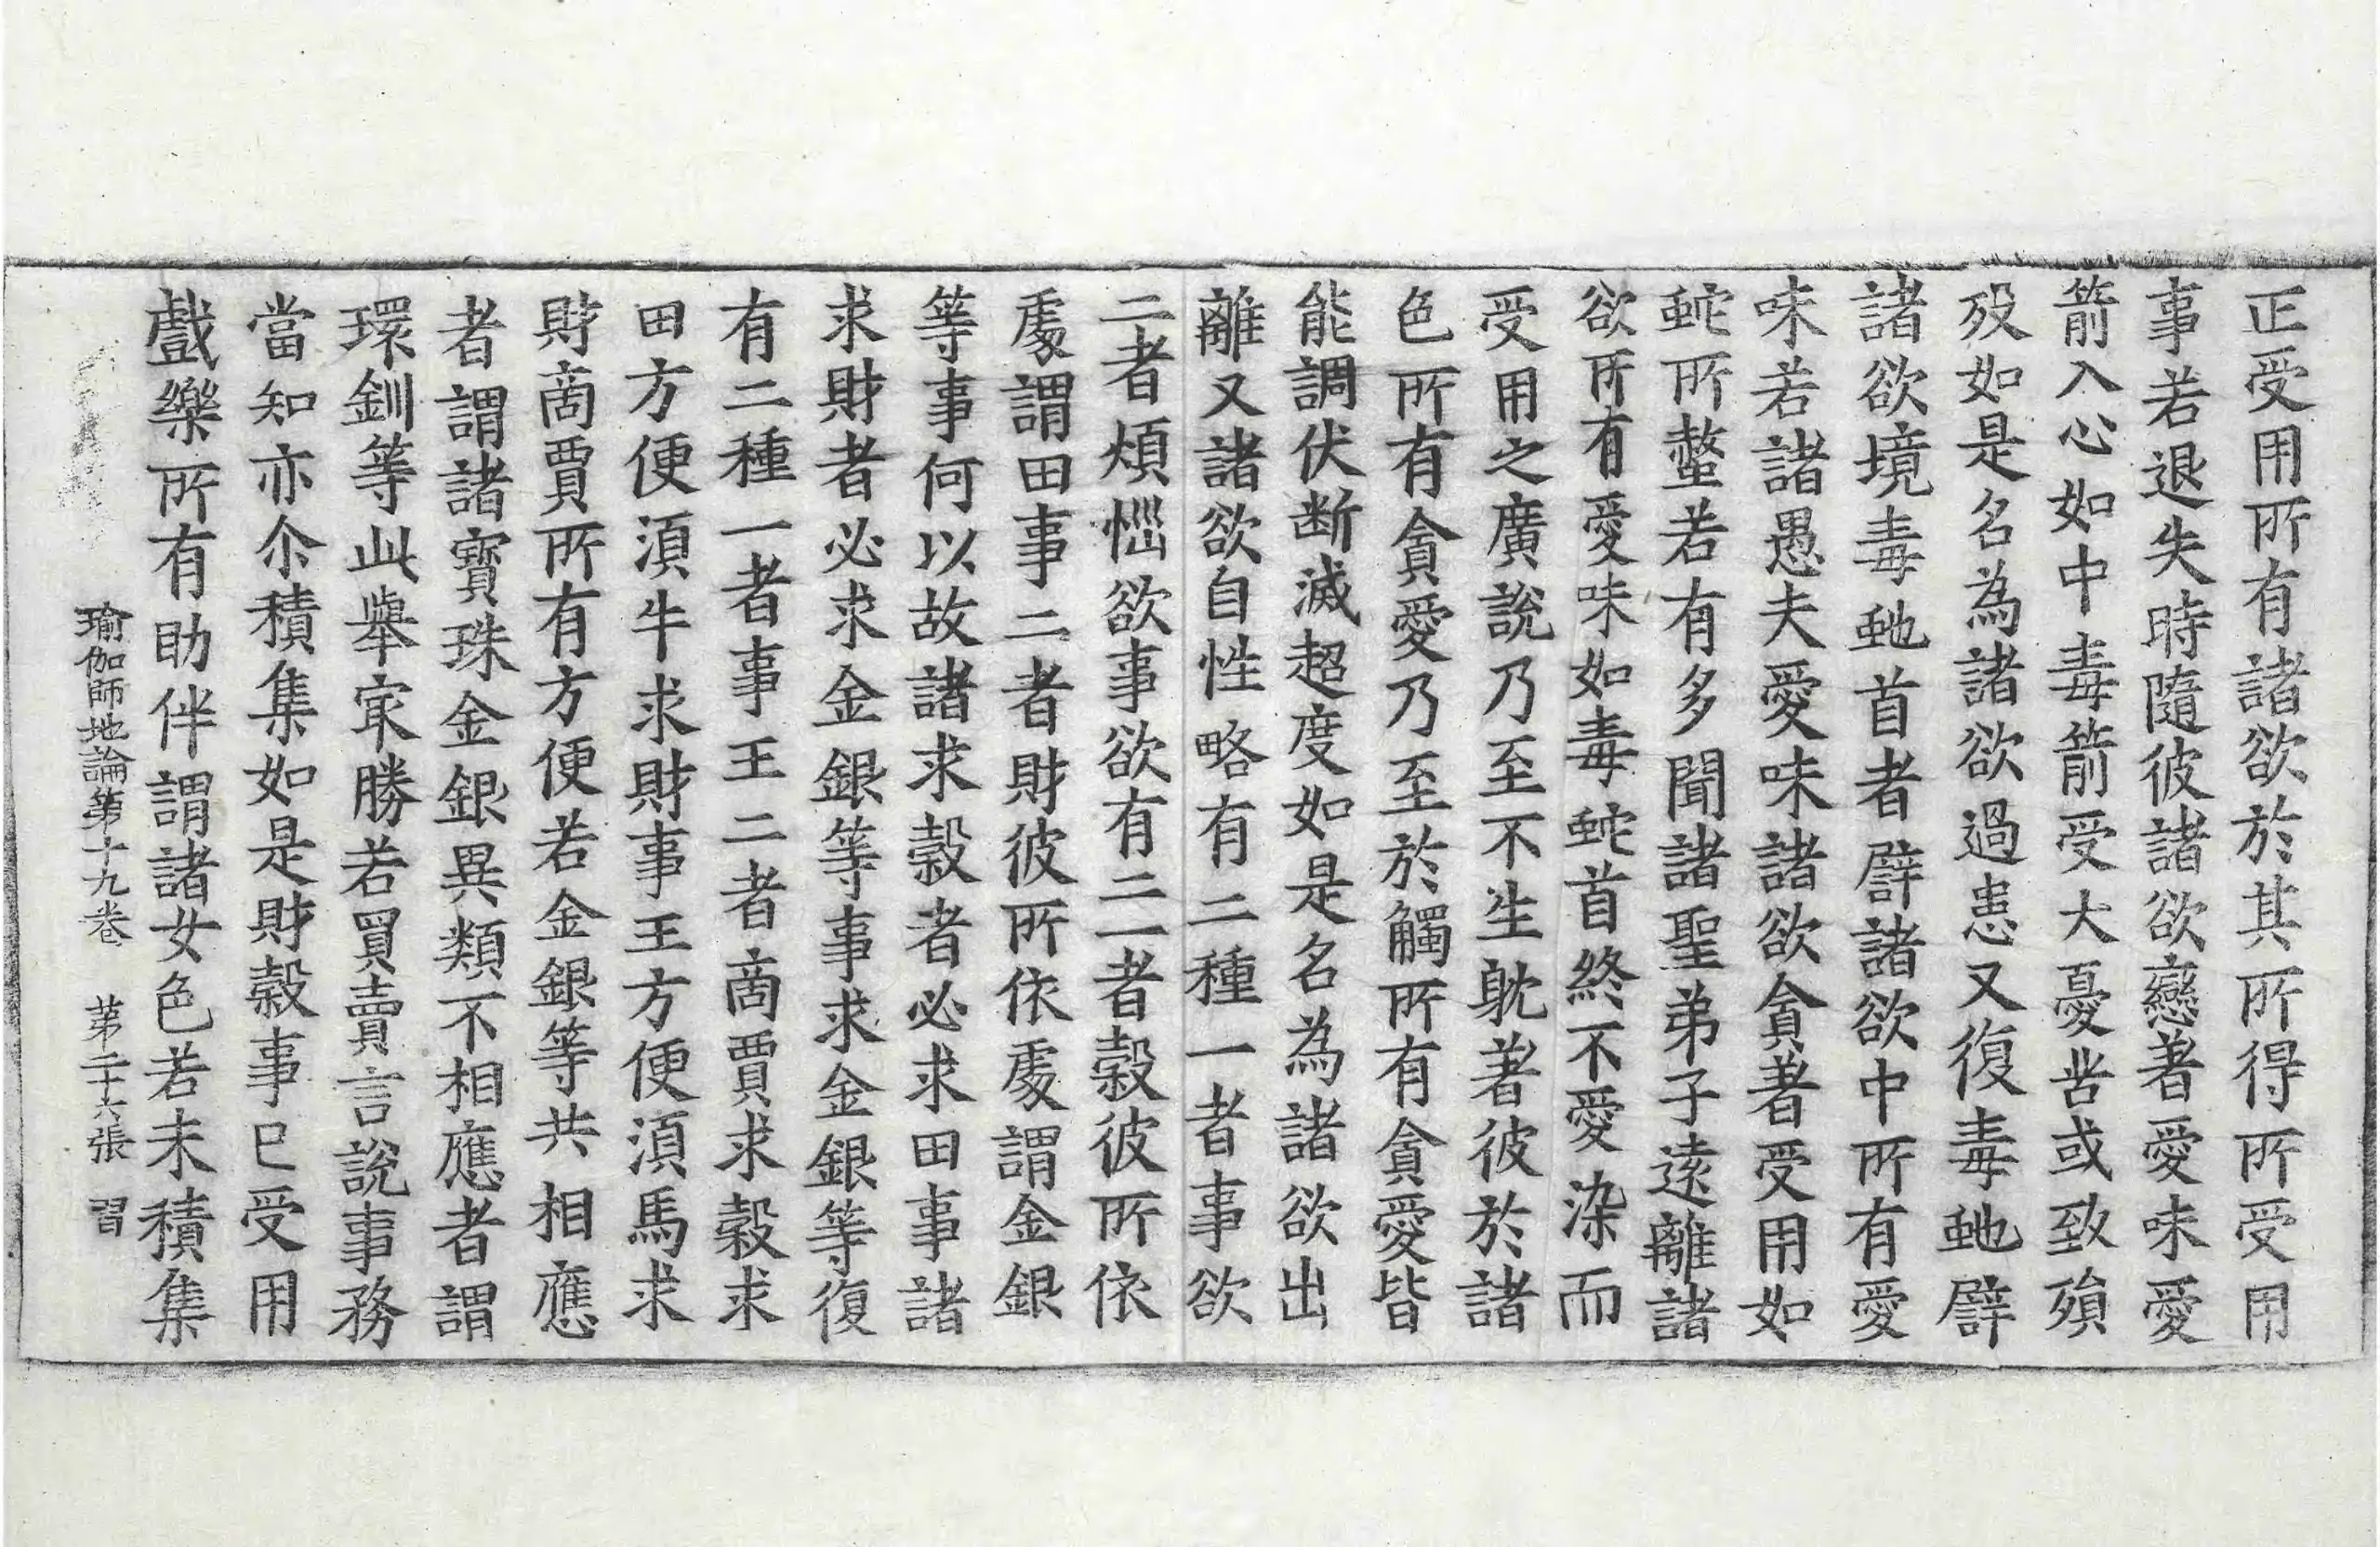 正受用所有諸欲於其所得所受用
事若退失時隨彼諸欲戀著愛味愛
箭入心如中毒箭受大憂苦或致殞
歿如是名為諸欲過患又復毒虵譬
諸欲境毒虵首者譬諸欲中所有愛
味若諸愚夫愛味諸欲貪著受用如
蛇所螫若有多聞諸聖弟子遠離諸
欲所有愛味如毒蛇首終不愛染而
受用之廣說乃至不生躭著彼於諸
色所有貪愛乃至於觸所有貪愛皆
能調伏断滅超度如是名為諸欲出
離又諸欲自性略有二種一者事欲
二者煩惱欲事欲有二一者穀彼所依
處謂田事二者財彼所依處謂金銀
等事何以故諸求穀者必求田事諸
求財者必求金銀等事求金銀等復
有二種一者事王二者商賈求穀求
田方便湏牛求財事王方便湏馬求
財商賈所有方便若金銀等共相應
者謂諸寶珠金銀異類不相應者謂
環釧等此舉㝡勝若買賣言說事務
當知亦尒積集如是財穀事已受用
戲樂所有助伴謂諸女色若未積集
瑜伽師地論第十九卷 苐二十六張 習